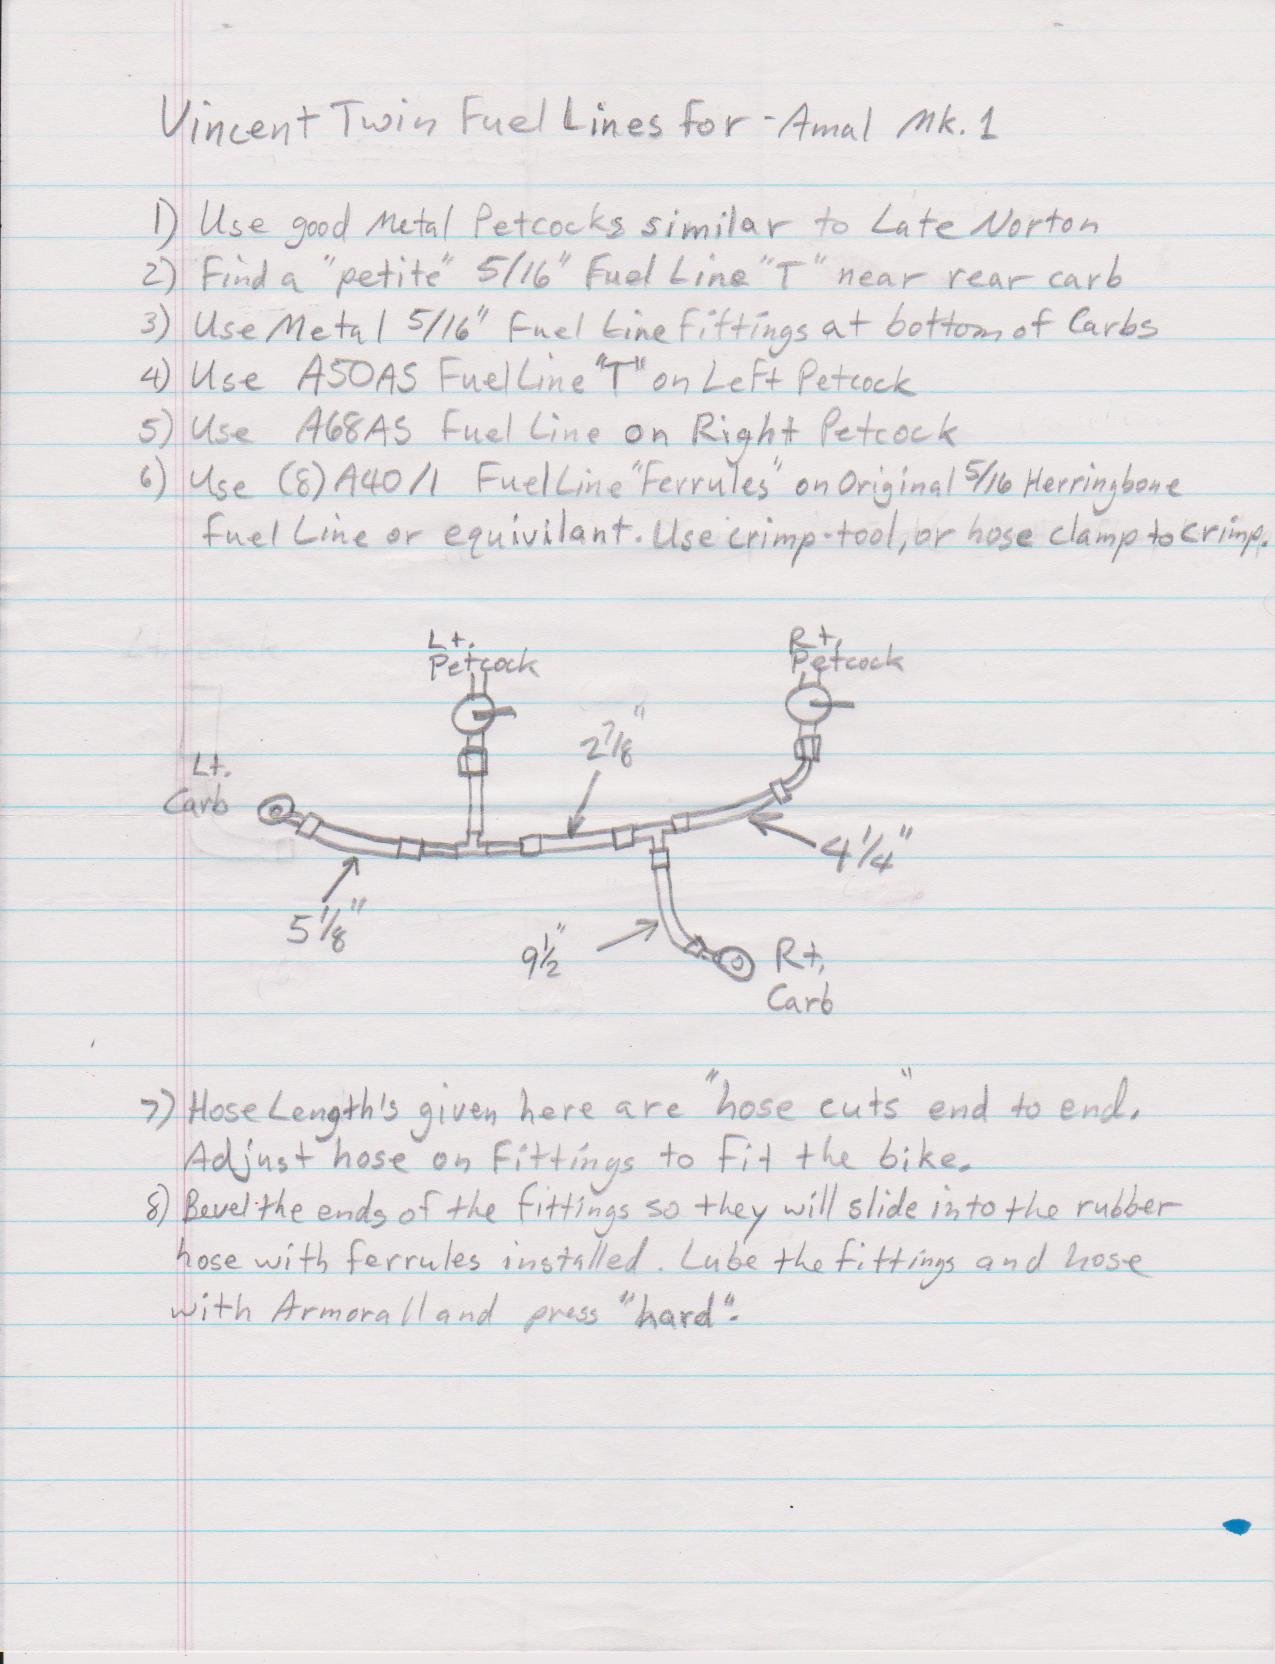 Vincent Twin Fuel Lines for - Amal Mk. 1
1) Use good Metal Petcocks similar to Late Norton
2) Find a "petite" 5/16" Fuel Line "T" near rear carb
3) Use Metal 5/16" Fuel Line fittings at bottom of Carbs
4) Use A50AS Fuel Line "T" on Left Petcock
5) Use A68AS Fuel Line on Right Petcock
6) Use (8) A40/1 Fuel Line "Ferrules" on Original 5/16 Herringbone
Fuel Line or equivilant. Use crimp-tool, or hose clamp to crimp.
Lt.
Petcock
Rt.
Petcock
2 7/8"
Lt.
Carb
4 1/4"
5 1/8"
9 1/2"
Rt.
Carb
7) Hose Length's given here are "hose cuts" end to end.
Adjust hose on fittings to fit the bike.
8) Bevel the ends of the fittings so they will slide into the rubber
hose with ferrules installed. Lube the fittings and hose
with Armorall and press "hard".